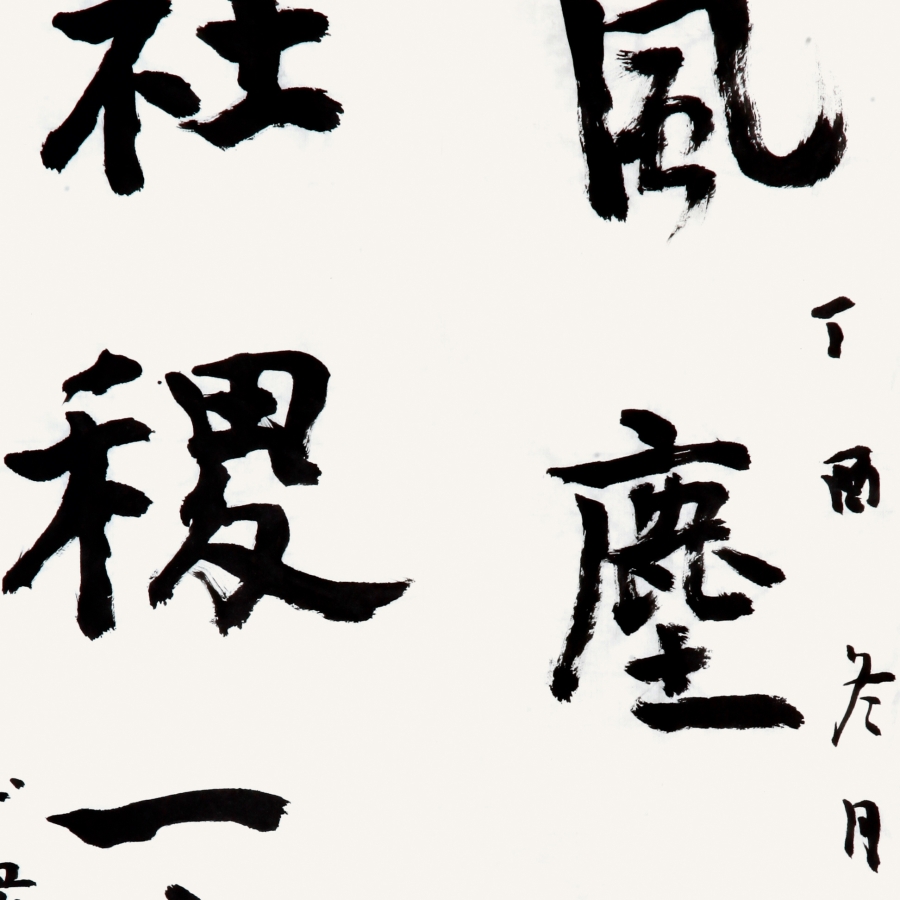 丁酉冬月
風塵
社稷一